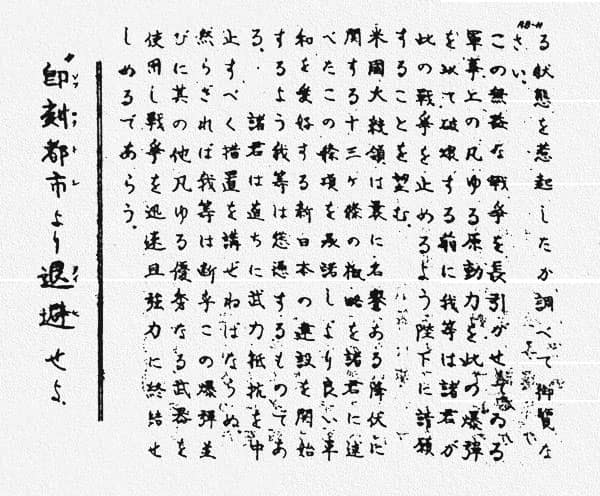 AB-11
る状態を惹起したか調べて御覧な
さい。
この無益な戦争を長引かせてゐる
軍事上の凡ゆる原動力を此の爆弾
を以て破壊する前に我等は諸君が
此の戦争を止めるよう陛下に請願
することを望む。
米國大統領は曩に名誉ある降伏に
関する十三ヶ條の概略を諸君に述
べたこの條項を承諾しより良い平
和を愛好する新日本の建設を開始
するよう我等は慫慂するものであ
る。 諸君は直ちに武力抵抗を中
止すべく措置を講ぜねばならぬ。
然らざれば我等は断乎この爆弾並
びに其の他凡ゆる優秀なる武器を
使用し戦争を迅速且強力に終結せ
しめるであらう。
"即刻都市より退避せよ。